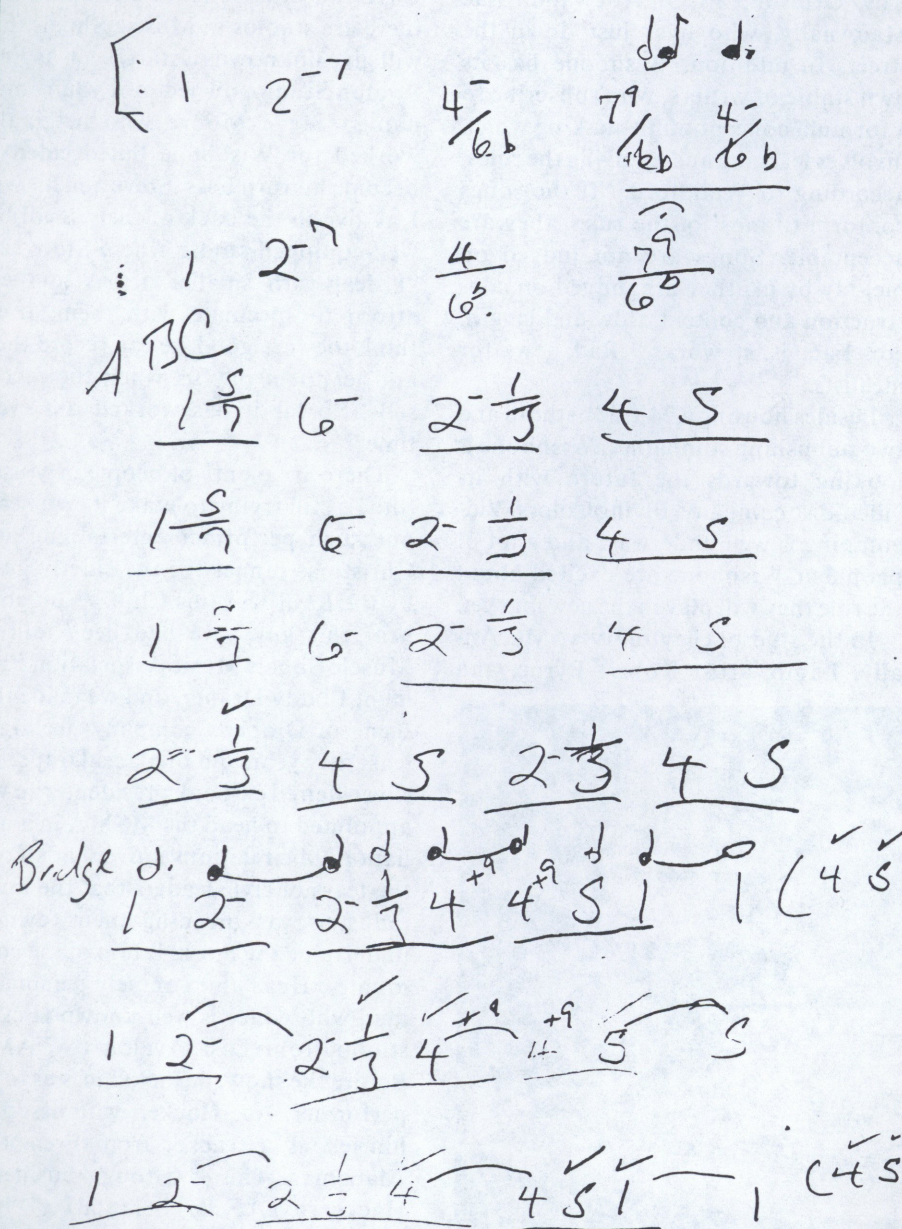 1 2-7 4-/6b +9/+6b 4-/6b
1 2-7 4/6b +9/6b
A BC
1 5/7 6- 2- 1/3 4 5
1 5/7 6- 2- 1/3 4 5
1 5/7 6- 2- 1/3 4 5
2- 1/3 4 5 2- 1/3 4 5
Bridge
1 2- 2- 1/3 4+9 4+9 5 1 1 (4 5
1 2- 2- 1/3 4+9 5 5
1 2 2- 1/3 4 4 5 1 1 (4 5